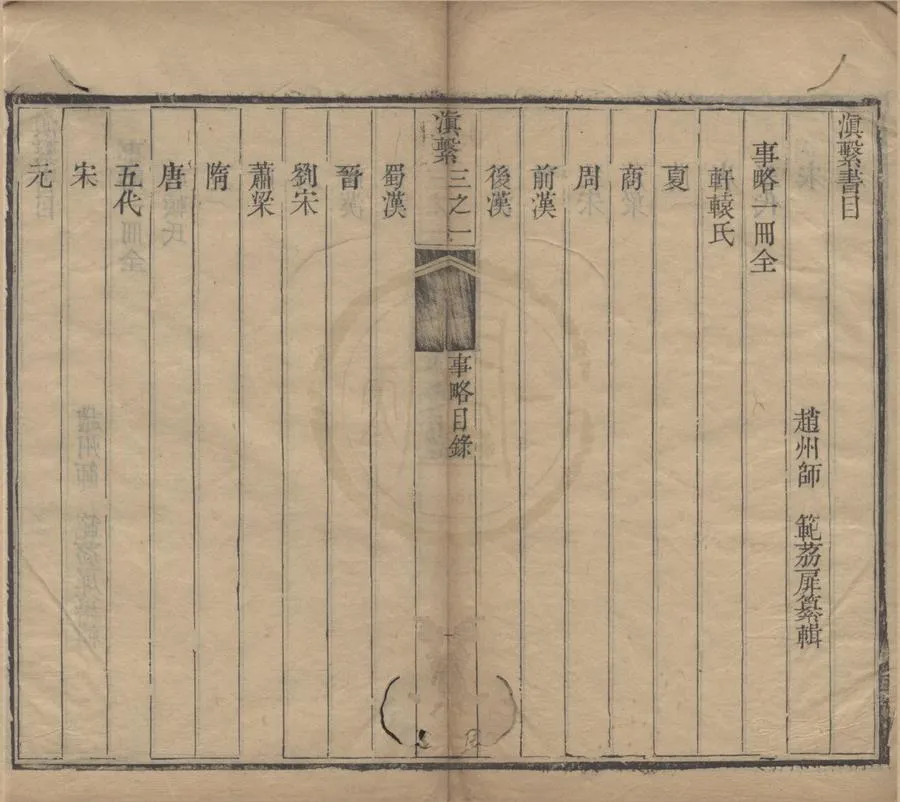 滇繫書目
趙州師　範荔扉纂輯
事略一冊全
軒轅氏
夏
商
周
前漢
後漢
滇繫　三之一　事略目錄　一
蜀漢
晉
劉宋
蕭梁
隋
唐
五代
宋
元